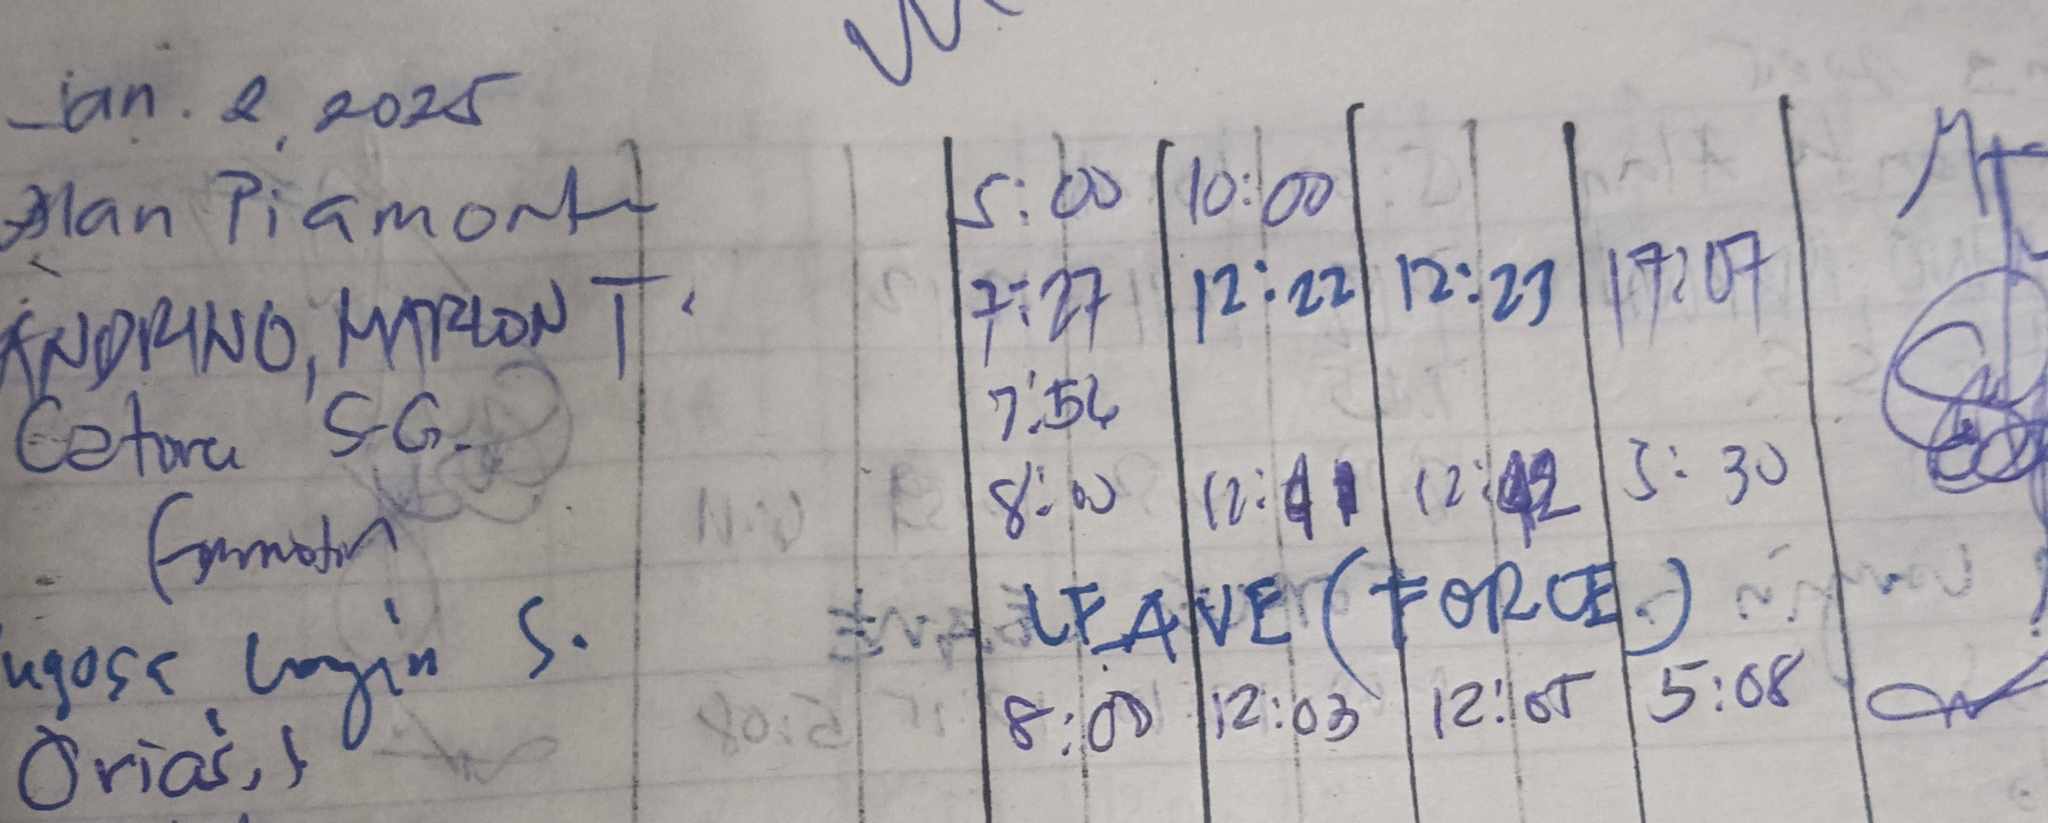 Jan. 2, 2025
Alan Piamonte 5:00 10:00
ANDRINO, MARLON T. 7:27 12:22 12:23 17:07
S.G. 7:56
8:00 12:41 12:42 5:30
S. LEAVE (FORCE)
Orias, J 8:00 12:03 12:05 5:08